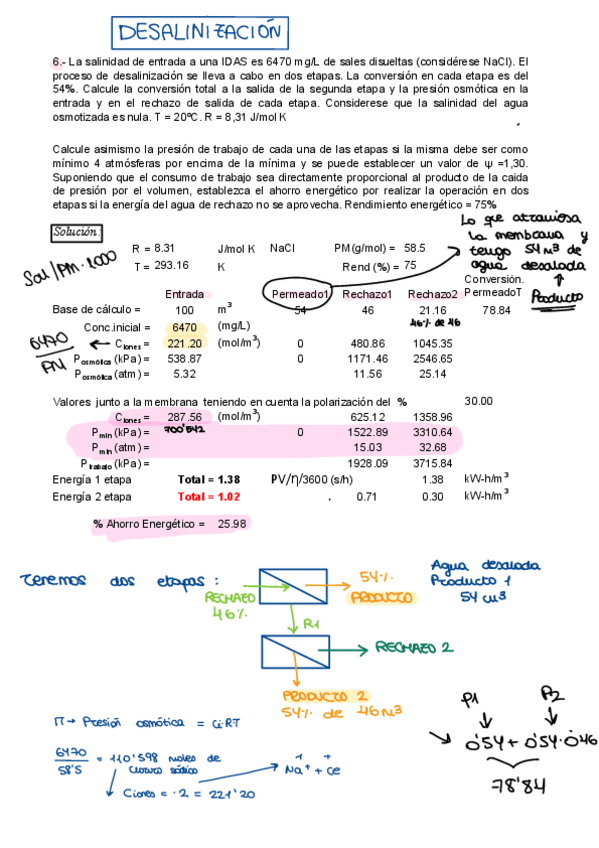 DESALINIZACIÓN
6.- La salinidad de entrada a una IDAS es 6470 mg/L de sales disueltas (considérese NaCl). El
proceso de desalinización se lleva a cabo en dos etapas. La conversión en cada etapa es del
54%. Calcule la conversión total a la salida de la segunda etapa y la presión osmótica en la
entrada y en el rechazo de salida de cada etapa. Considerese que la salinidad del agua
osmotizada es nula. T = 20ºC. R = 8,31 J/mol K
Calcule asimismo la presión de trabajo de cada una de las etapas si la misma debe ser como
mínimo 4 atmósferas por encima de la mínima y se puede establecer un valor de ψ =1,30.
Suponiendo que el consumo de trabajo sea directamente proporcional al producto de la caida
de presión por el volumen, establezca el ahorro energético por realizar la operación en dos
etapas si la energía del agua de rechazo no se aprovecha. Rendimiento energético = 75%
Solución:
Lo que atraviesa
la membrana y
tengo 54 m³ de
agua desalada
↑
Producto
R = 8.31 J/mol K NaCl PM(g/mol) = 58.5
Sal/PM·1000
T = 293.16 K Rend (%) = 75
Conversión.
Entrada Permeado1 Rechazo1 Rechazo2 PermeadoT
Base de cálculo = 100 m³ 54 46 21.16 78.84
46% de 46
Conc.inicial = 6470 (mg/L)
6470/PM ← Ciones = 221.20 (mol/m³) 0 480.86 1045.35
Posmótica (kPa) = 538.87 0 1171.46 2546.65
Posmótica (atm) = 5.32 11.56 25.14
Valores junto a la membrana teniendo en cuenta la polarización del % 30.00
Ciones = 287.56 (mol/m³) 625.12 1358.96
Pmín (kPa) = 700'542 0 1522.89 3310.64
Pmín (atm) = 15.03 32.68
Ptrabajo (kPa) = 1928.09 3715.84
Energía 1 etapa Total = 1.38 PV/η/3600 (s/h) 1.38 kW-h/m³
Energía 2 etapa Total = 1.02 . 0.71 0.30 kW-h/m³
% Ahorro Energético = 25.98
Tenemos dos etapas :
RECHAZO
46%
54%
PRODUCTO
Agua desalada
Producto 1
54 m³
R1
RECHAZO 2
PRODUCTO 2
54% de 46 m³
π → Presión osmótica = Ci·RT
6470/58'5 = 110'598 moles de
cloruro sódico
Na⁺ + Cl
Ciones = ·2 = 221'20
P1 P2
0'54 + 0'54·0'46
78'84